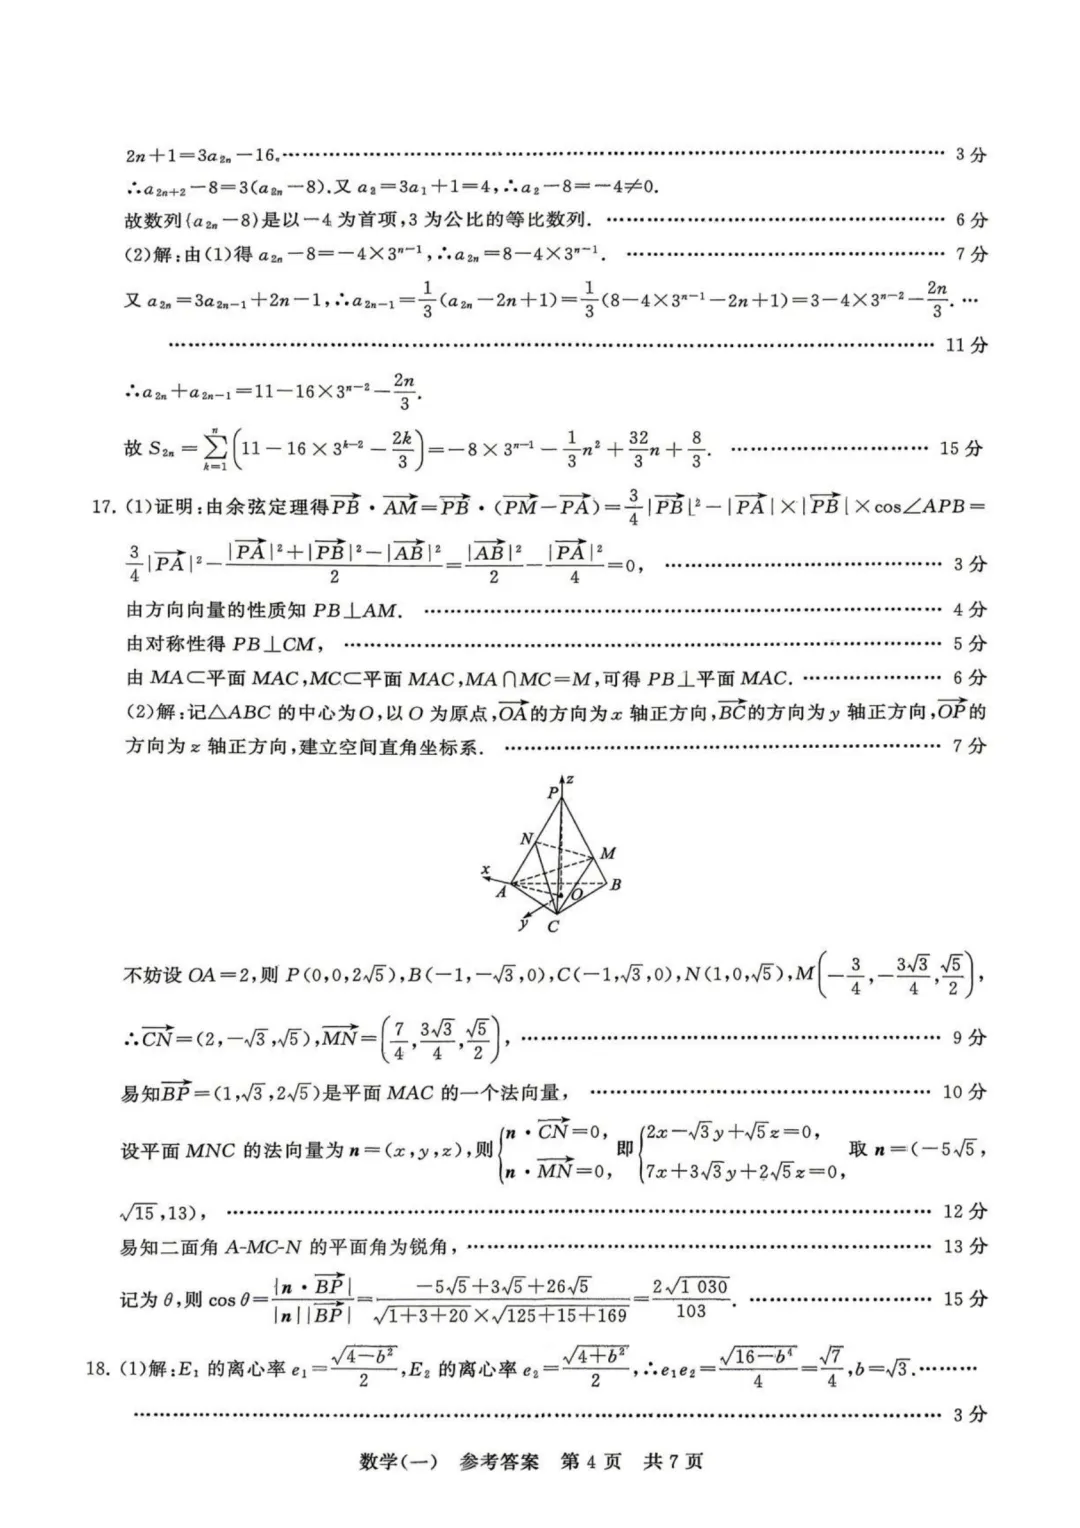 2n+1=3a₂ₙ-16.…… 3分
∴a₂ₙ₊₂-8=3(a₂ₙ-8).又a₂=3a₁+1=4,∴a₂-8=-4≠0.
故数列{a₂ₙ-8}是以-4为首项,3为公比的等比数列. …… 6分
(2)解:由(1)得a₂ₙ-8=-4×3ⁿ⁻¹,∴a₂ₙ=8-4×3ⁿ⁻¹. …… 7分
又a₂ₙ=3a₂ₙ₋₁+2n-1,∴a₂ₙ₋₁=1/3(a₂ₙ-2n+1)=1/3(8-4×3ⁿ⁻¹-2n+1)=3-4×3ⁿ⁻²-2n/3. …
…… 11分
∴a₂ₙ+a₂ₙ₋₁=11-16×3ⁿ⁻²-2n/3.
故S₂ₙ=∑ₖ₌₁ⁿ(11-16×3ᵏ⁻²-2k/3)=-8×3ⁿ⁻¹-1/3n²+32/3n+8/3. …… 15分
17. (1)证明:由余弦定理得PB→·AM→=PB→·(PM→-PA→)=3/4|PB→|²-|PA→|×|PB→|×cos∠APB=
3/4|PA→|²-(|PA→|²+|PB→|²-|AB→|²)/2=|AB→|²/2-|PA→|²/4=0, …… 3分
由方向向量的性质知PB⊥AM. …… 4分
由对称性得PB⊥CM, …… 5分
由MA⊂平面MAC,MC⊂平面MAC,MA∩MC=M,可得PB⊥平面MAC. …… 6分
(2)解:记△ABC的中心为O,以O为原点,OA→的方向为x轴正方向,BC→的方向为y轴正方向,OP→的
方向为z轴正方向,建立空间直角坐标系. …… 7分
z
P
N
M
x
A
B
O
y
C
不妨设OA=2,则P(0,0,2√5),B(-1,-√3,0),C(-1,√3,0),N(1,0,√5),M(-3/4,-3√3/4,√5/2),
∴CN→=(2,-√3,√5),MN→=(7/4,3√3/4,√5/2), …… 9分
易知BP→=(1,√3,2√5)是平面MAC的一个法向量, …… 10分
设平面MNC的法向量为n=(x,y,z),则{n·CN→=0, n·MN→=0, 即{2x-√3y+√5z=0, 7x+3√3y+2√5z=0, 取n=(-5√5,
√15,13), …… 12分
易知二面角A-MC-N的平面角为锐角, …… 13分
记为θ,则cosθ=|n·BP→|/|n||BP→|=(-5√5+3√5+26√5)/(√(1+3+20)×√(125+15+169))=2√1 030/103. …… 15分
18. (1)解:E₁的离心率e₁=√(4-b²)/2,E₂的离心率e₂=√(4+b²)/2,∴e₁e₂=√(16-b⁴)/4=√7/4,b=√3.……
…… 3分
数学(一) 参考答案 第4页 共7页